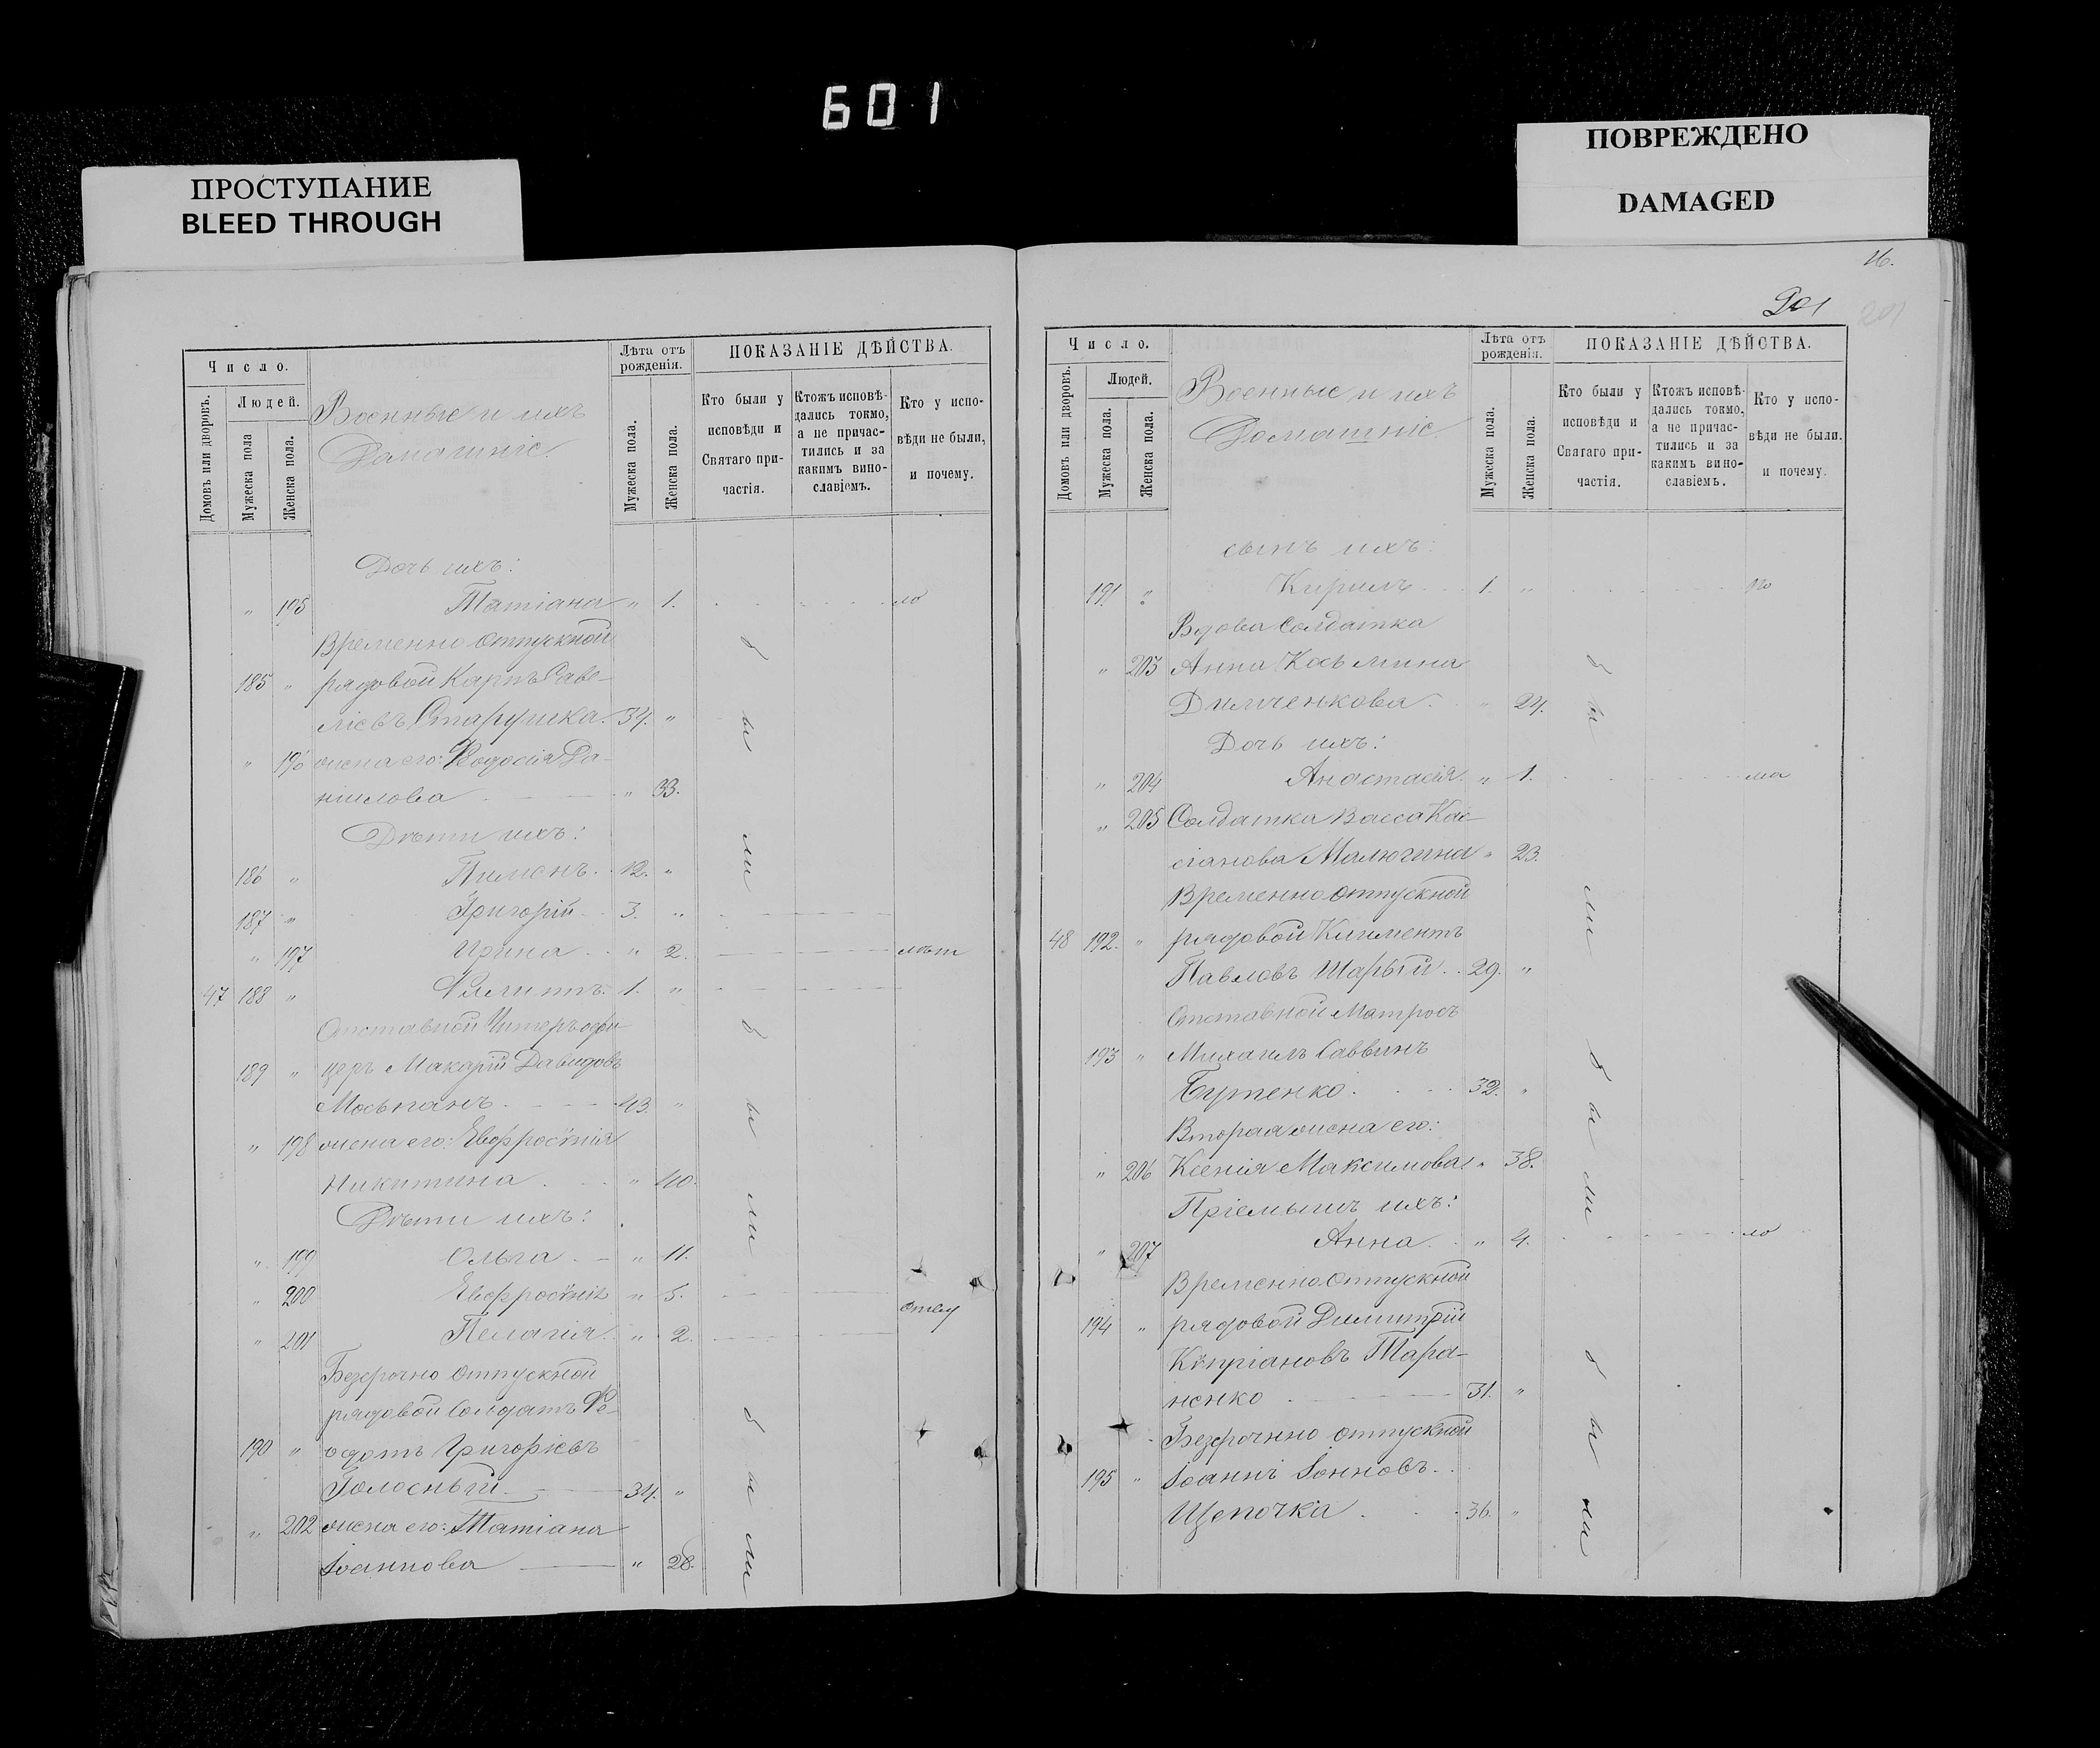 601
ПРОСТУПАНИЕ
BLEED THROUGH
ПОВРЕЖДЕНО
DAMAGED
Число.
Людей.
Домовъ или дворовъ.
Мужеска пола
Женска пола.
Военные и ихъ
Домашніе.
Лѣта отъ рожденія.
Мужеска пола.
Женска пола.
ПОКАЗАНІЕ ДѢЙСТВА.
Кто были у исповѣди и Святаго причастія.
Ктожъ исповѣдались токмо, а не причастились и за какимъ винославіемъ.
Кто у исповѣди не были, и почему.
Дочь ихъ:
" 195 Татіана " 1. ло
Временно отпускной
185 " рядовой Карпъ Саве-
ліевъ Старушка. 34. "
" 196 жена его: Ѳеодосія Да-
ніилова " 33.
Дѣти ихъ:
186 " Пименъ 12. "
187 " Григорій 3. "
" 197 Ирина " 2. лѣт
47 188 " Филиппъ 1. "
Отставной Унтеръ офи-
189 " церъ Макарій Давидовъ
Моспанъ 43. "
" 198 жена его: Евфросѵнія
Никитина " 40.
Дѣти ихъ:
" 199 Ольга " 11.
" 200 Евфросѵнія " 5.
" 201 Пелагія " 2.
Безсрочно отпускной
рядовой Солдатъ Ѳе-
190 " одотъ Григоріевъ
Голосный 34. "
" 202 жена его: Татіана
Іоаннова " 28.
были
были
были
16.
201
Число.
Людей.
Домовъ или дворовъ.
Мужеска пола.
Женска пола.
Военные и ихъ
Домашніе.
Лѣта отъ рожденія.
Мужеска пола.
Женска пола.
ПОКАЗАНІЕ ДѢЙСТВА.
Кто были у исповѣди и Святаго причастія.
Ктожъ исповѣдались токмо, а не причастились и за какимъ винославіемъ.
Кто у исповѣди не были. и почему.
сынъ ихъ:
191 " Кирилъ 1. "
Вдова Солдатка
" 203 Анна Косьмина
Димченкова " 24.
Дочь ихъ:
" 204 Анастасія " 1. ма
" 205 Солдатка Васса Кас-
сіанова Малютина " 23.
Временно отпускной
48 192. " рядовой Климентъ
Павловъ Шарый 29. "
Отставной Матросъ
193 " Михаилъ Саввинъ
Бутенко 32. "
Вторая жена его:
" 206 Ксенія Максимова " 38.
Пріемышъ ихъ:
" 207 Анна " 4. ло
Временно отпускной
194 " рядовой Димитрій
Кѵпріановъ Тара-
ненко 31. "
Безсрочно отпускной
195 " Іоаннъ Іонновъ
Щепочка 36. "
были
были
были